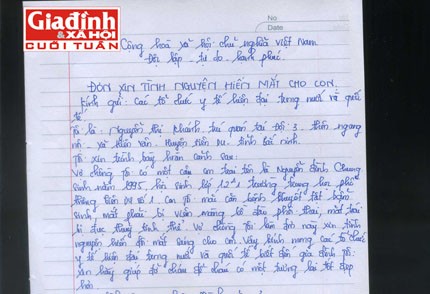 Giađình
& XÃ HỘI
CUỐI TUẦN
No
Date
Cộng hoà xã hội chủ nghĩa việt Nam
Độc lập - tự do - hạnh phúc.
ĐƠN XIN TÌNH NGUYỆN HIẾN MẮT CHO CON.
Kính gửi: Các tổ chức y tế hiện đại trong nước và quốc
tế
Tôi là: Nguyễn thị Khanh trú quán tại Đội 3. thôn ngang
nội - xã hiên vân. Huyện tiên Du. tỉnh bắc ninh.
Tôi xin trình bày hoàn cảnh sau:
Vợ chồng tôi có một cậu con trai tên là Nguyễn Đình Chung
sinh năm 1995, học sinh lớp 12 trường trung học phổ
thông tiên Du số 1. Con tôi mắc căn bệnh khuyết tật bẩm
sinh, mắt phải bị viêm màng bồ đào phá thai, mắt trái
bị đục thuỷ tinh thể. Vợ chồng tôi làm đơn này xin tình
nguyện hiến đôi mắt mình cho con. Vậy kính mong các tổ chức
y tế hiện đại trong nước và quốc tế biết đến gia đình tôi
xin hãy giúp đỡ cháu để cháu có một tương lai tốt đẹp
hơn